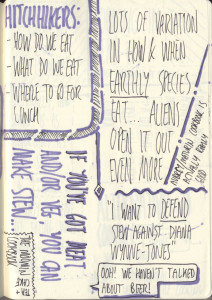 HITCHHIKERS:
- HOW DO WE EAT
- WHAT DO WE EAT
- WHERE TO GO FOR
LUNCH
LOTS OF VARIATION
IN HOW & WHEN
EARTHLY SPECIES
EAT... ALIENS
OPEN IT OUT
EVEN MORE
COOKBOOK IS
ACTUALLY REALLY
GOOD
IF YOU'VE GOT MEAT
AND/OR VEG, YOU CAN
MAKE STEW...
"I WANT TO DEFEND
STEW AGAINST DIANA
WYNNE-JONES"
OOH! WE HAVEN'T TALKED
ABOUT BEER!